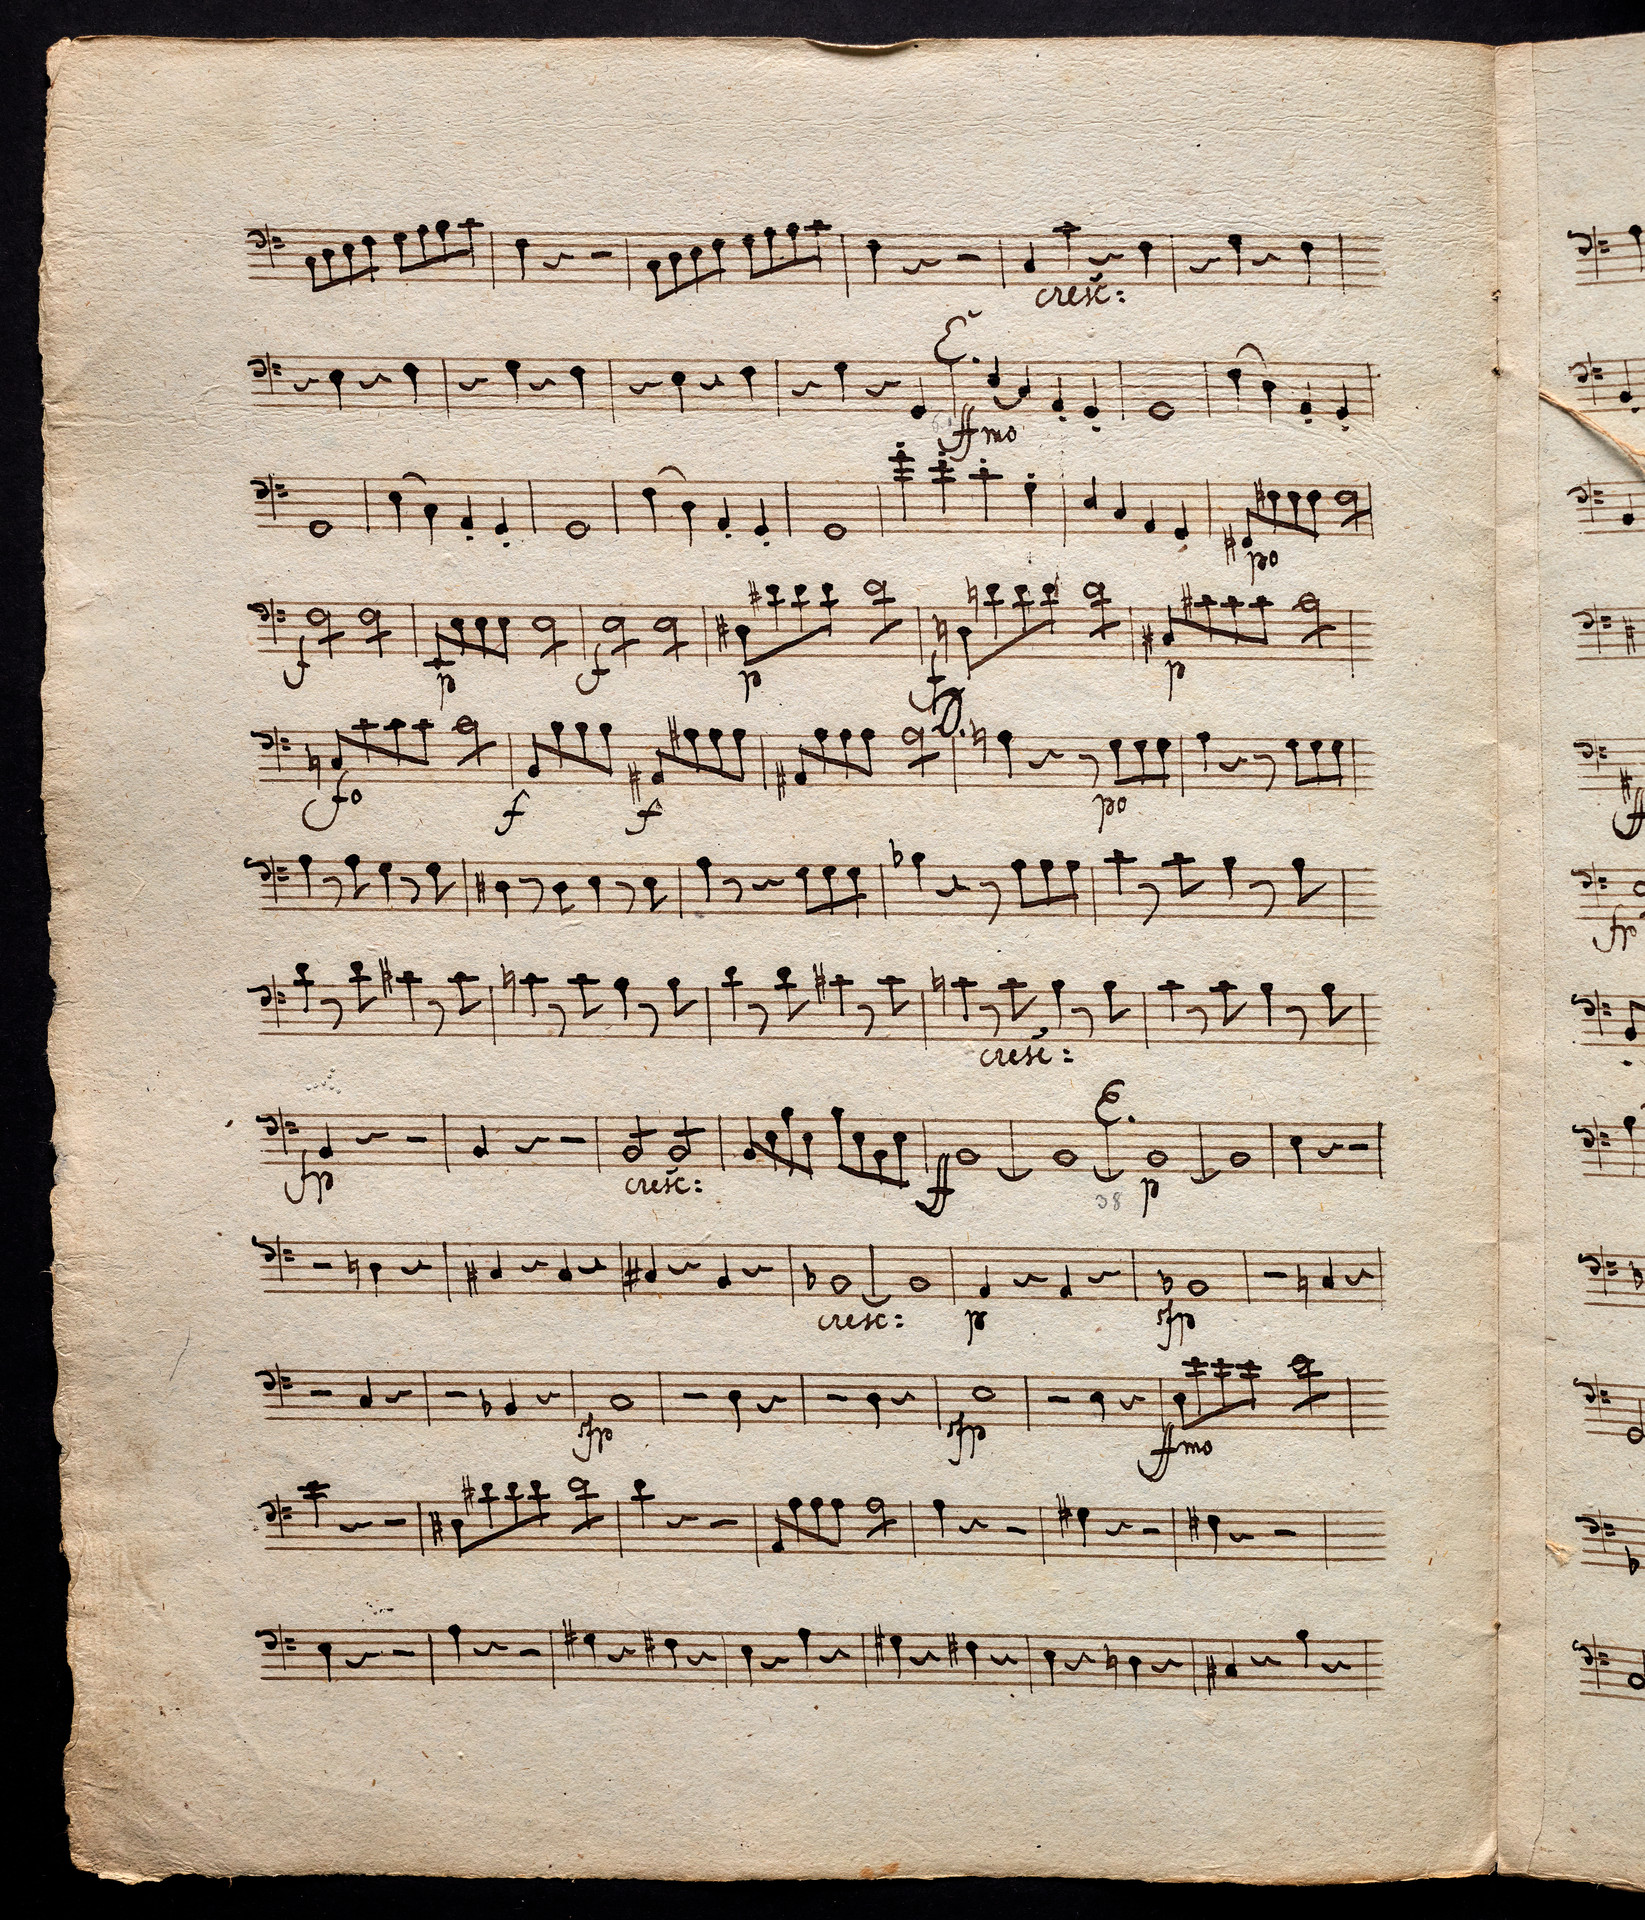 cresc:
E.
ffmo
po
f p f p f p
D.
fo f f po
cresc:
E.
fp cresc: ff 38 p
cresc: p sfp
sfp sfp ffmo